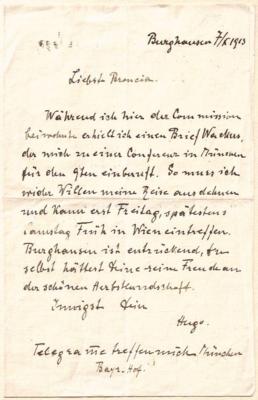 Burghausen 7/X 1913
Liebst Broncia.
Während ich hier der Commission
beiwohnte erhielt ich einen Brief Wackers,
der mich zu einer Conferenz in München
für den 9ten einberuft. So muss ich
wider Willen meine Reise ausdehnen
und kann erst Freitag, spätestens
Samstag Früh in Wien eintreffen.
Burghausen ist entzückend, Du
selbst hättest Deine reine Freude an
der schönen Herbstlandschaft.
Innigst Dein
Hugo.
Telegramme treffen mich München
Bayr. Hof.